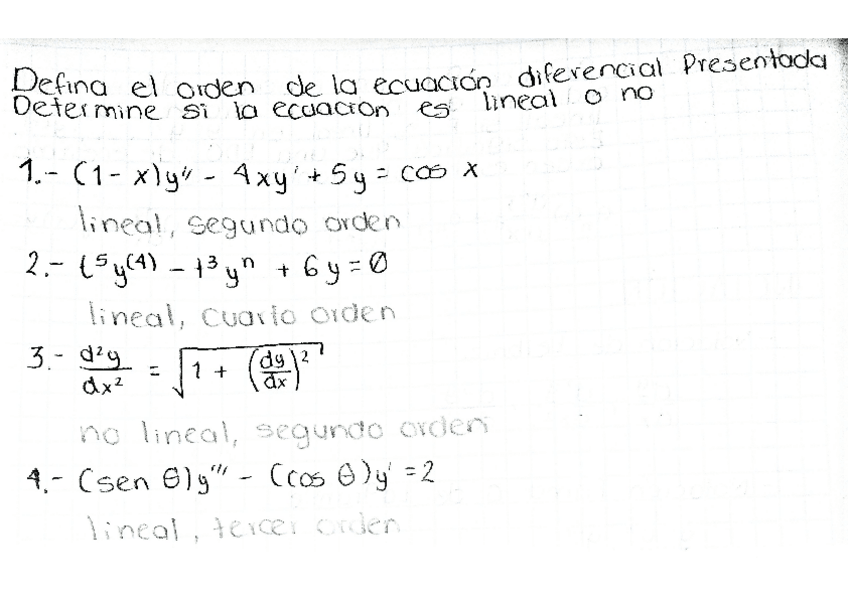 Defina el orden de la ecuación diferencial Presentada
Determine si la ecuacion es lineal o no
1.- (1 - x)y'' - 4xy' + 5y = cos x
lineal, segundo orden
2.- t⁵y⁽⁴⁾ - t³yⁿ + 6y = 0
lineal, cuarto orden
3.- d²y/dx² = √(1 + (dy/dx)²)
no lineal, segundo orden
4.- (sen θ)y''' - (cos θ)y' = 2
lineal, tercer orden